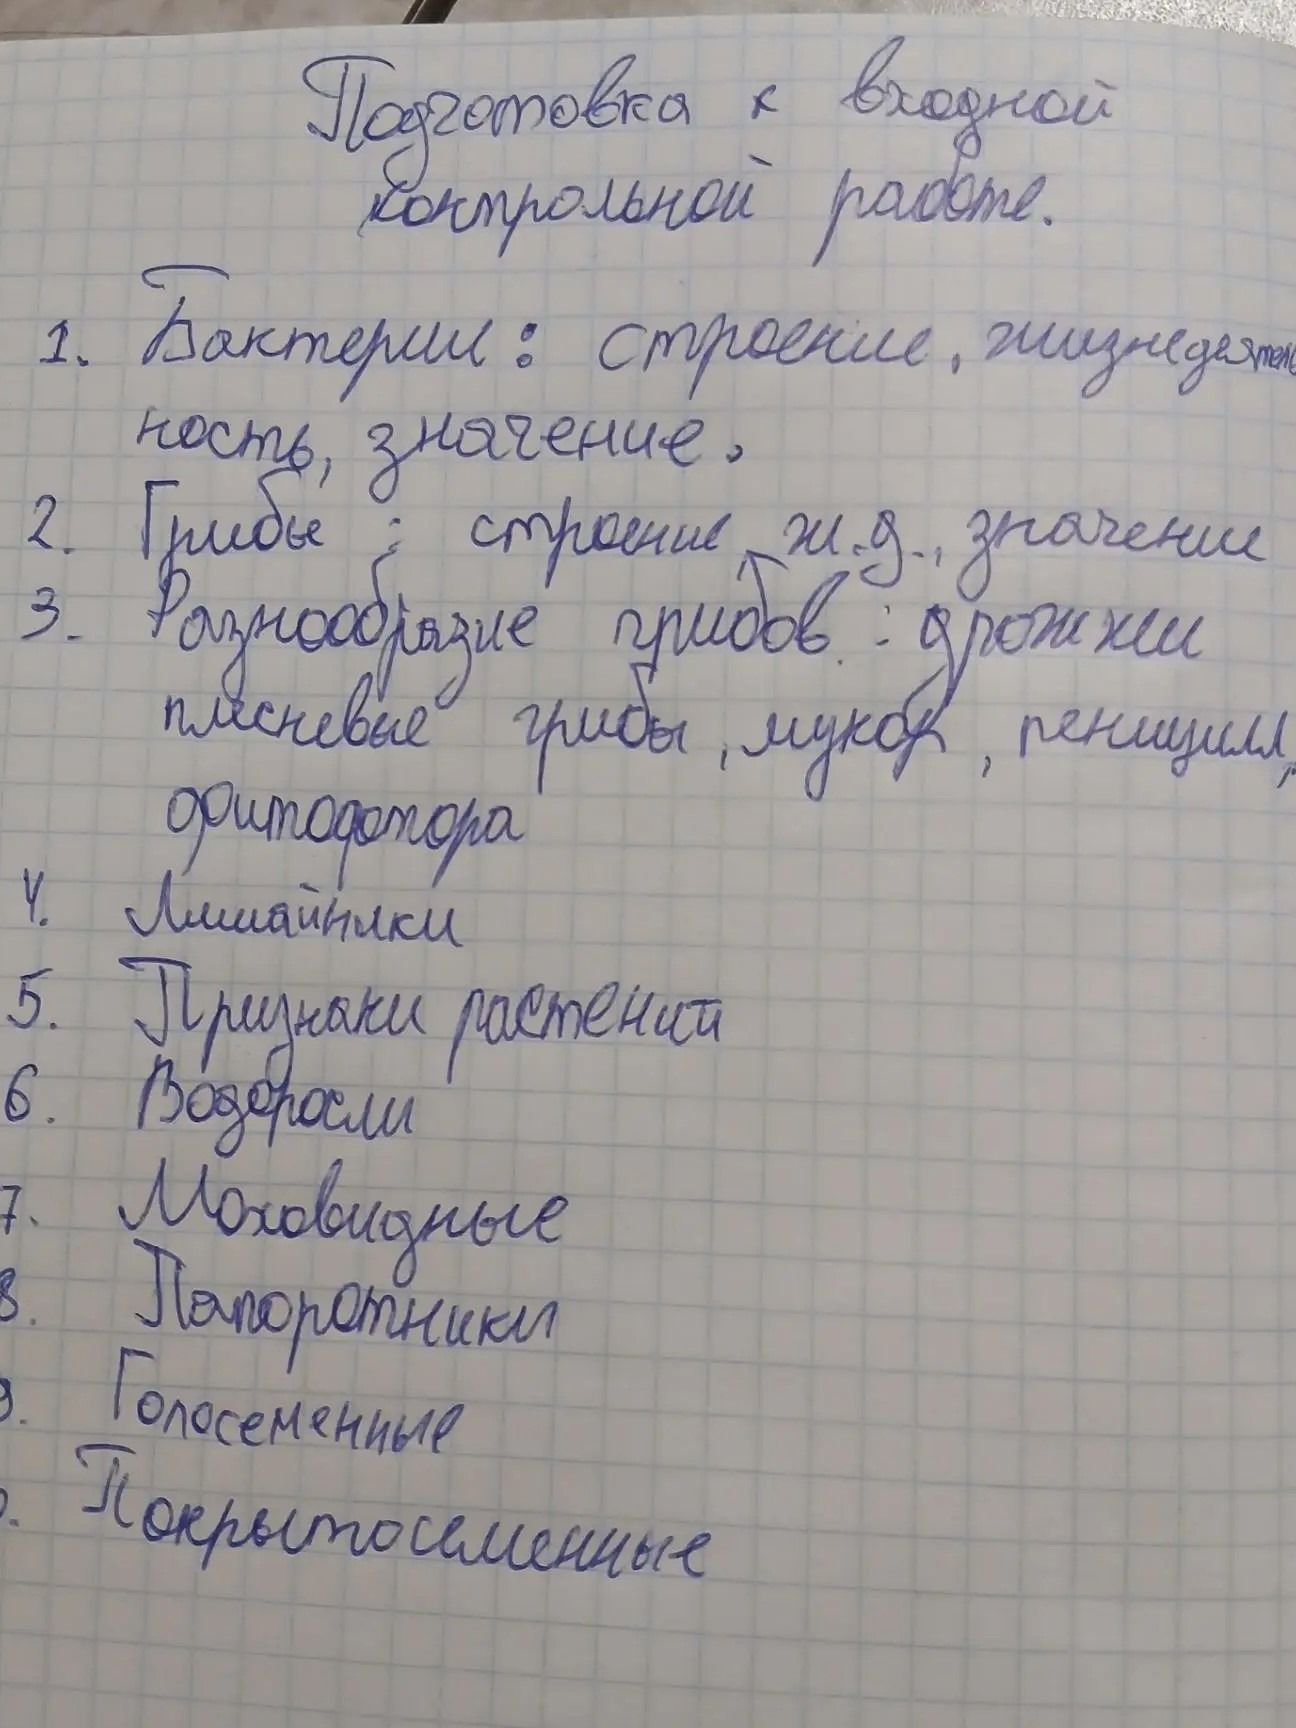 Подготовка к входной
контрольной работе.
1. Бактерии: строение, жизнедеятель
ность, значение.
2. Грибы: строение, ж.д., значение
3. Разнообразие грибов: дрожжи
плесневые грибы, мукор, пеницилл,
фитофтора
4. Лишайники
5. Признаки растений
6. Водоросли
7. Моховидные
8. Папоротники
9. Голосеменные
0. Покрытосеменные